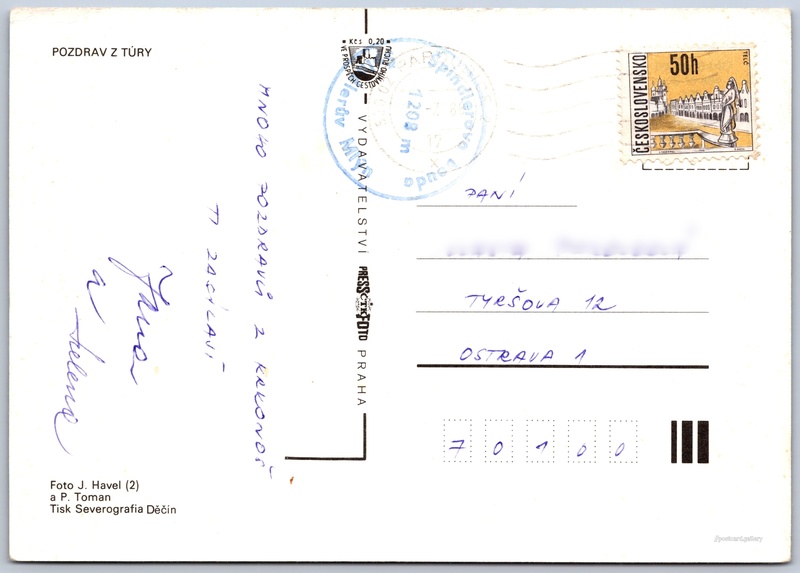 POZDRAV Z TÚRY
Kčs 0,20
VE PROSPĚCH CESTOVNÍHO RUCHU
Špindlerova bouda
1208 m
Špindlerův Mlýn
ČESKOSLOVENSKO
50h
TELČ
MNOHO POZDRAVŮ Z KRKONOŠ
TI ZASÍLAJÍ
Jana
a Helena
VYDAVATELSTVÍ PRESSFOTO PRAHA
ČTK
PANÍ
TYRŠOVA 12
OSTRAVA 1
7 0 1 0 0
Foto J. Havel (2)
a P. Toman
Tisk Severografia Děčín
//postcard.gallery